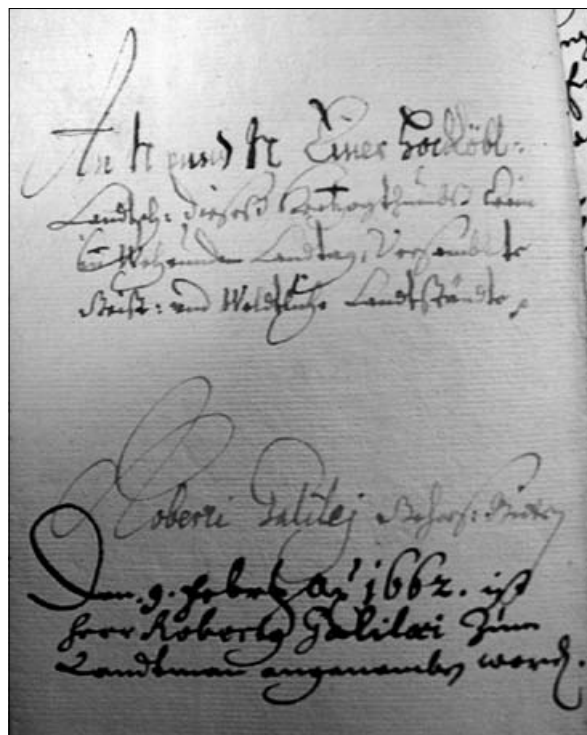 An N und N Einer Hochlöbl:
Landtsch: dieses Hertzogthumbs Crain
in Wehrunden Landtag, Versamblte
Geist: und Weldtliche Landtständte
Roberti Galilej gehors:
Den. 9. Febr. Aō 1662. ist
Herr Roberty Galilaei Zum
Landtman angenomben word.